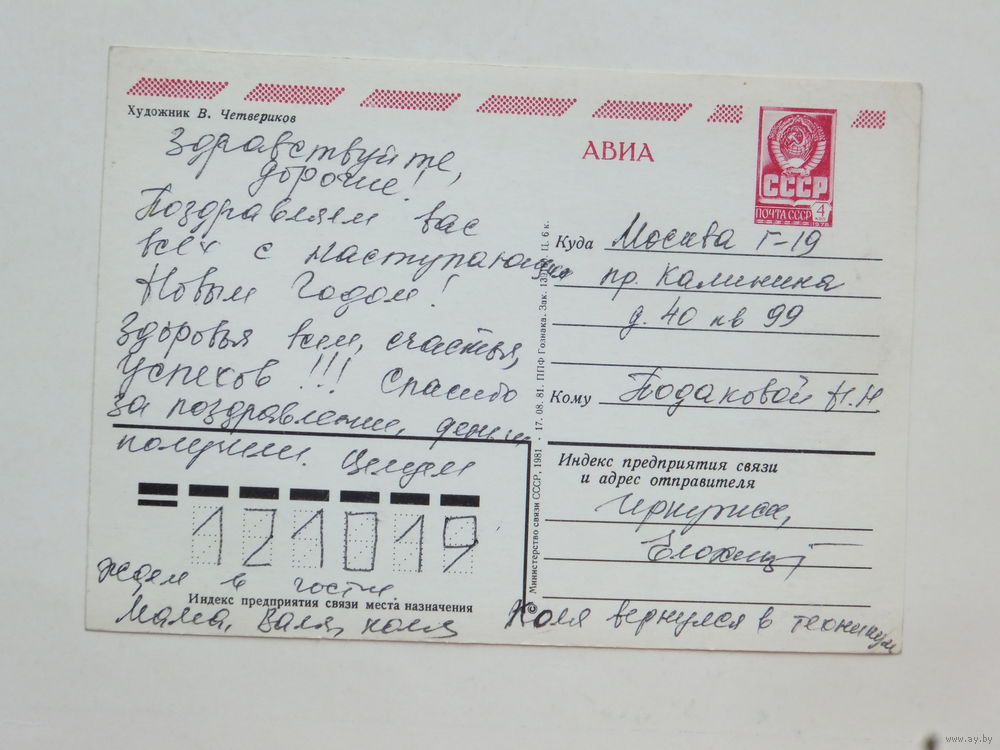 Художник В. Четвериков
Здравствуйте,
дорогие!
Поздравляем вас
всех с наступающим
Новым Годом!
Здоровья всем, счастья,
успехов!!! Спасибо
за поздравление, деньги
получили. Целуем
121019
ждем в гости.
Индекс предприятия связи места назначения
Мама, Валя, Коля
АВИА
СССР
ПОЧТА СССР 4
1978
Куда Москва Г-19
пр. Калинина
д. 40 кв 99
Кому Подаковой Н.Н.
© Министерство связи СССР. 1981 · 17. 08. 81. ППФ Гознака. Зак. Ц. 6 к.
Индекс предприятия связи
и адрес отправителя
Иркутск,
Коля вернулся в техникум
www.ay.by